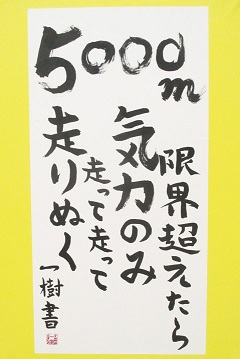 5000m
限界超えたら
気力のみ
走って走って
走りぬく
一樹書